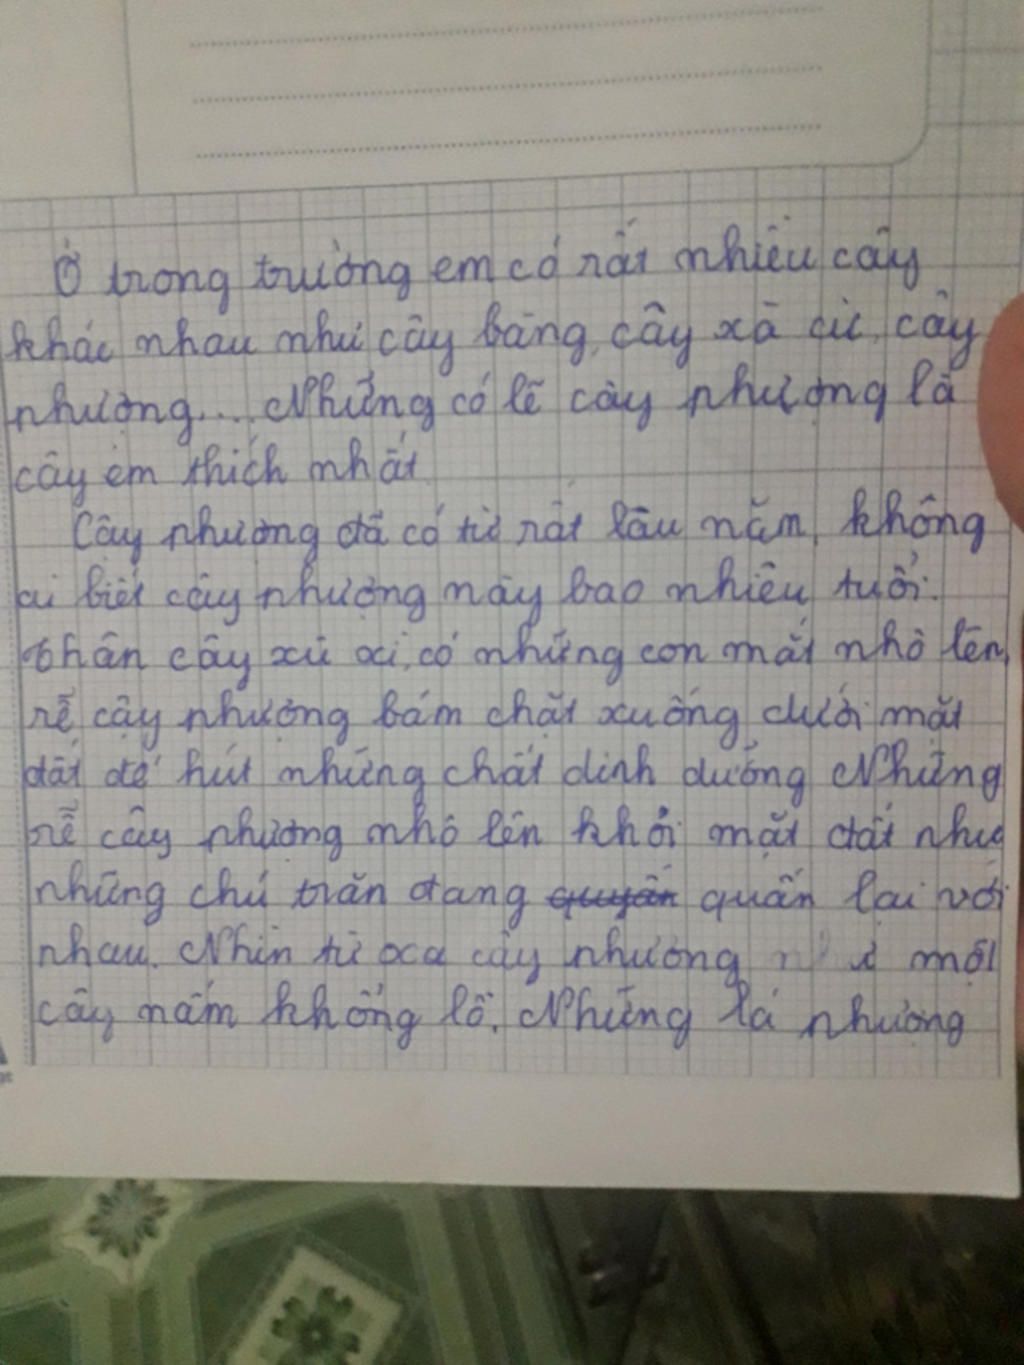 Ở trong trường em có rất nhiều cây
khác nhau như cây bàng, cây xà cừ, cây
phượng... Nhưng có lẽ cây phượng là
cây em thích nhất
Cây phượng đã có từ rất lâu năm, không
ai biết cây phượng này bao nhiêu tuổi.
thân cây xù xì, có những con mắt nhô lên,
rễ cây phượng bám chặt xuống dưới mặt
đất để hút những chất dinh dưỡng Những
rễ cây phượng nhô lên khỏi mặt đất như
những chú trăn đang quấn lại với
nhau. Nhìn từ xa cây phượng như một
cây nấm khổng lồ. Những lá phượng